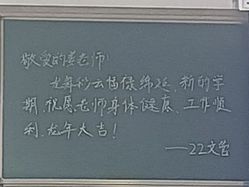 敬爱的娄老师!
龙年祥云福禄绵延,新的学
期,祝愿老师身体健康、工作顺
利、龙年大吉!
——22文管